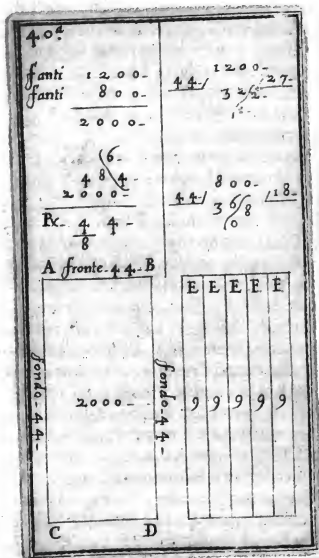 40.ª
fanti 1200-
fanti 800-
2000-
6-
4 8 4
2000-
R- 4 4-
8
1200-
44/ 3 2 2- 27-
1-
800-
44/ 3 6 8 /18-
0
A fronte-44-B
fondo-44-
2000-
fondo-44-
C D
E E E E E
9 9 9 9 9